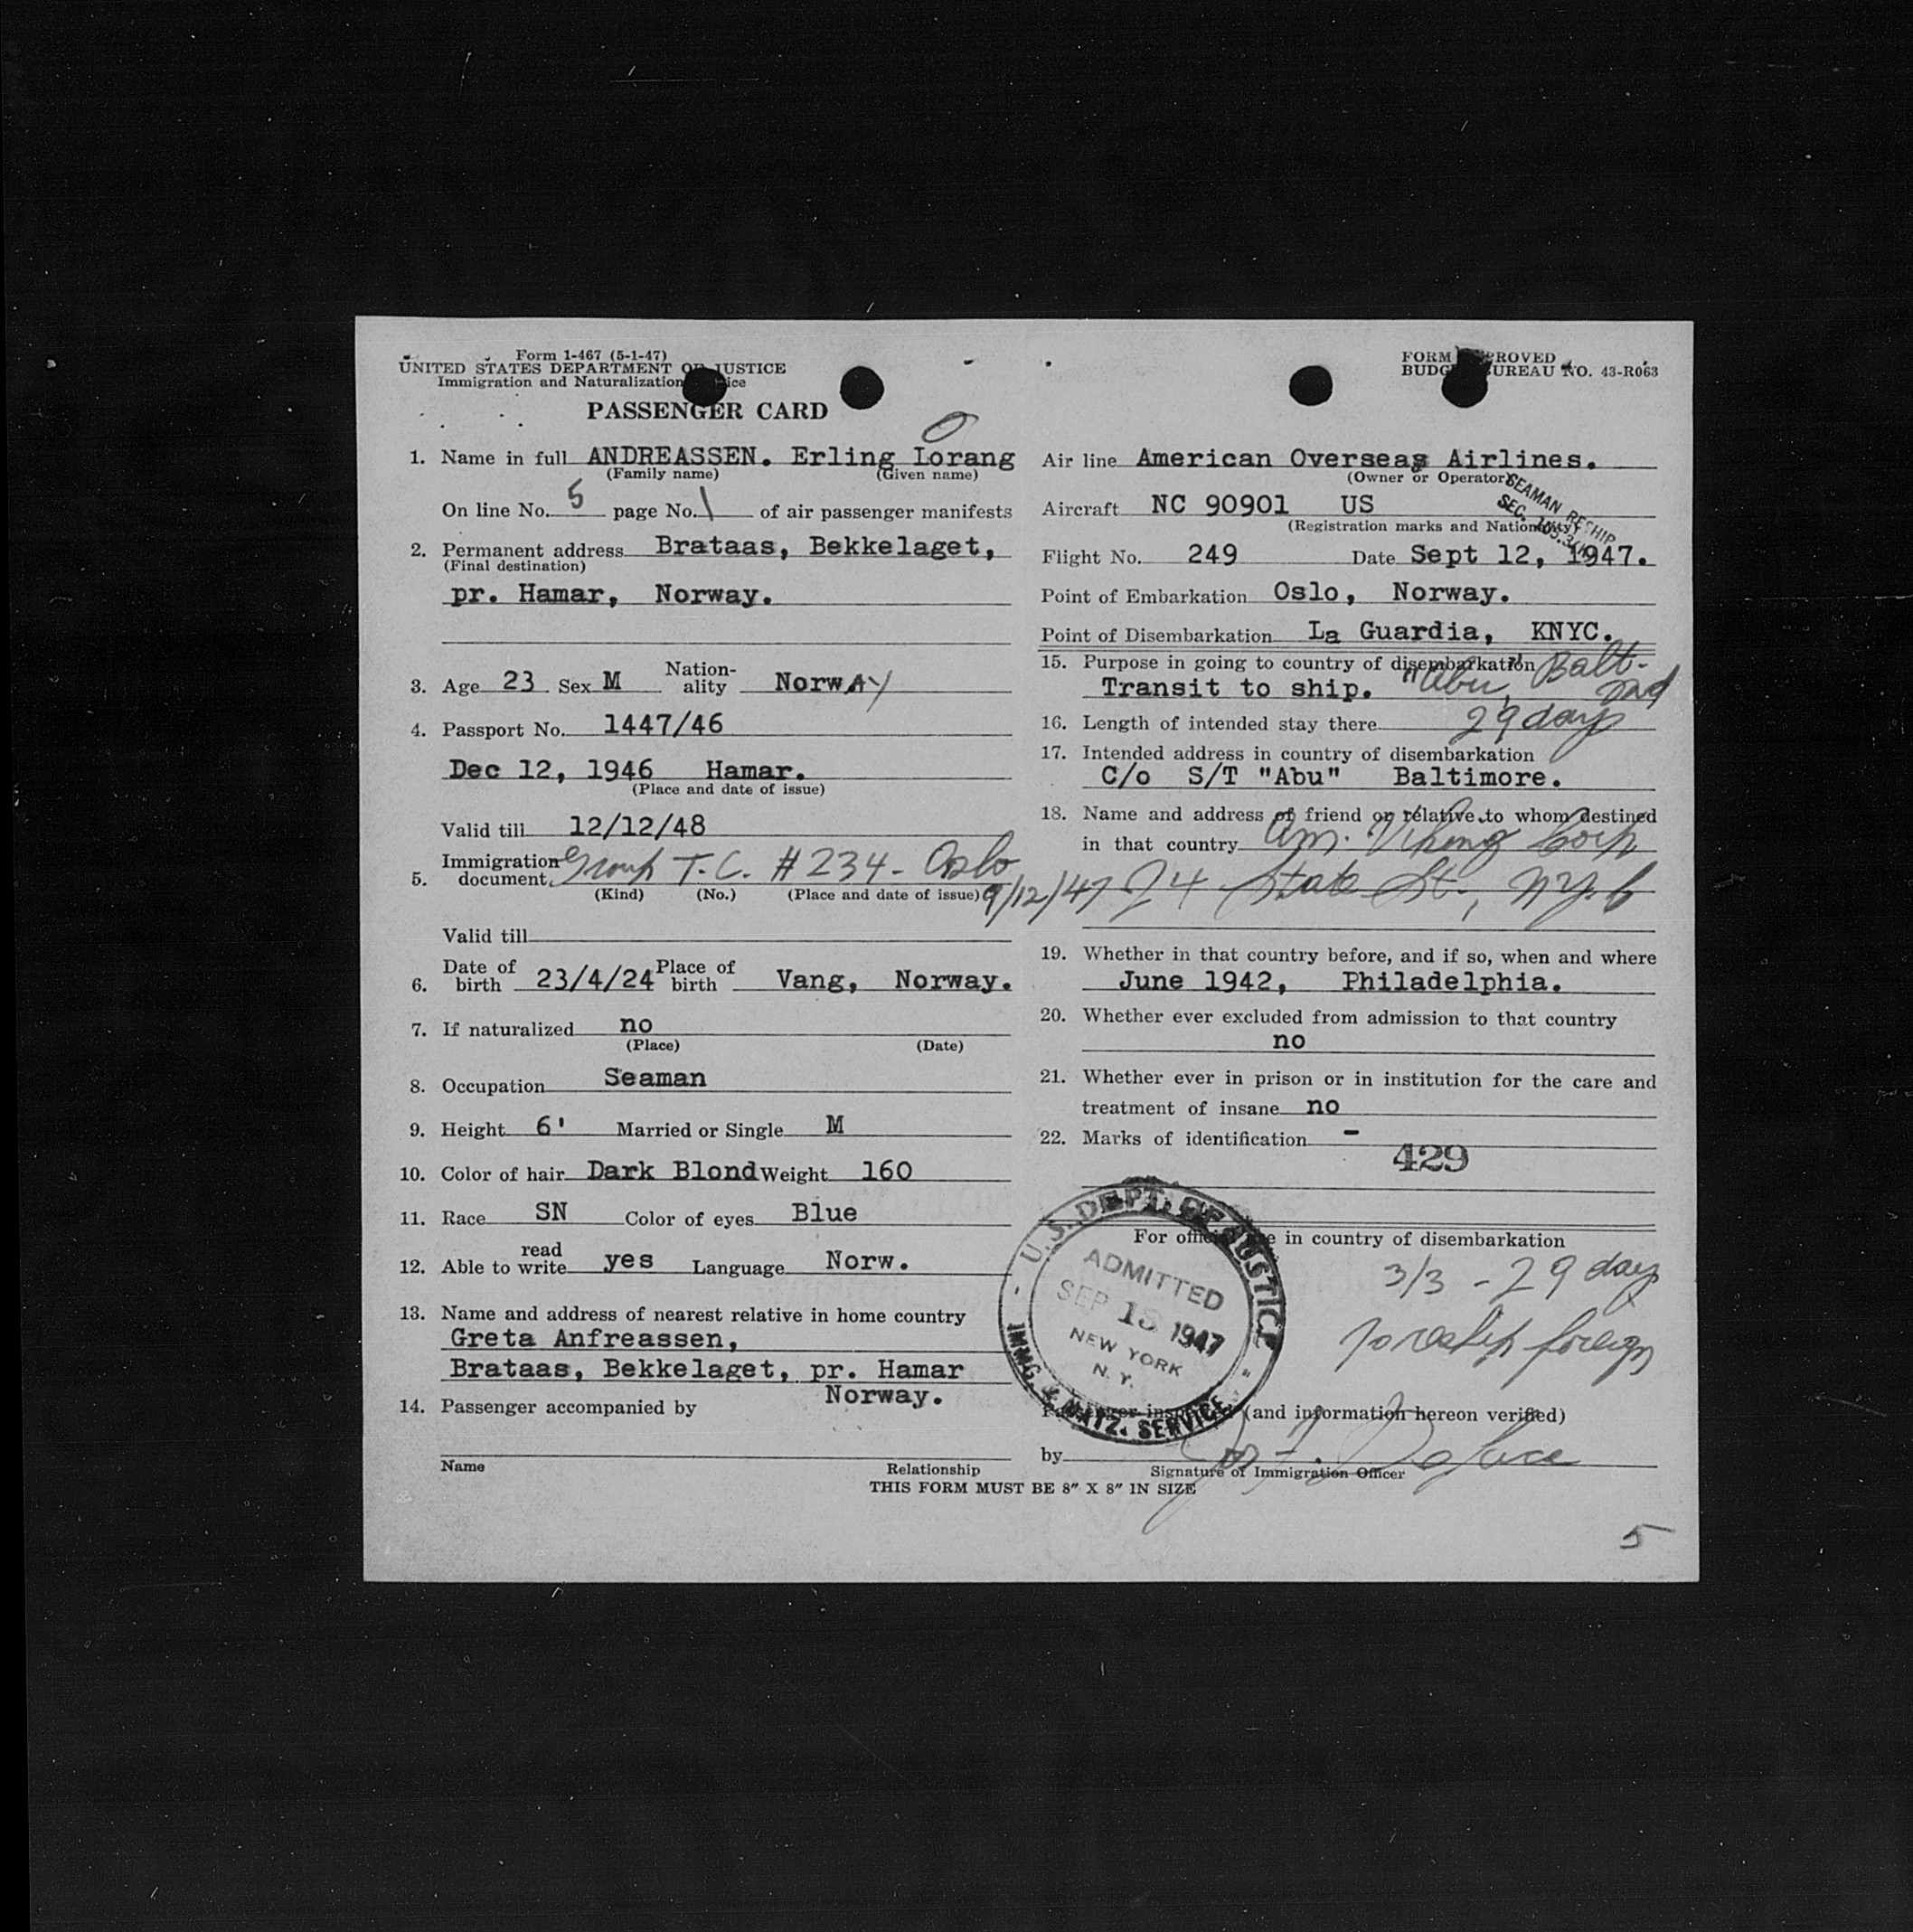 Form 1-467 (5-1-47)
UNITED STATES DEPARTMENT OF JUSTICE
Immigration and Naturalization
PASSENGER CARD
FORM APPROVED
BUDGET BUREAU NO. 43-R063
1. Name in full ANDREASSEN. Erling Lorang
(Family name) (Given name)
On line No. 5 page No. 1 of air passenger manifests
2. Permanent address Brataas, Bekkelaget,
(Final destination)
pr. Hamar, Norway.
3. Age 23 Sex M Nation-ality Norway
4. Passport No. 1447/46
Dec 12, 1946 Hamar.
(Place and date of issue)
Valid till 12/12/48
5. Immigration document Group T.C. #234 - Oslo
(Kind) (No.) (Place and date of issue) 9/12/47
Valid till
6. Date of birth 23/4/24 Place of birth Vang, Norway.
7. If naturalized no
(Place) (Date)
8. Occupation Seaman
9. Height 6' Married or Single M
10. Color of hair Dark Blond Weight 160
11. Race SN Color of eyes Blue
12. Able to read write yes Language Norw.
13. Name and address of nearest relative in home country
Greta Anfreassen,
Brataas, Bekkelaget, pr. Hamar
Norway.
14. Passenger accompanied by
Name Relationship
Air line American Overseas Airlines.
(Owner or Operator)
SEAMAN RESHIP
SEC.
Aircraft NC 90901 US
(Registration marks and Nationality)
Flight No. 249 Date Sept 12, 1947.
Point of Embarkation Oslo, Norway.
Point of Disembarkation La Guardia, KNYC.
15. Purpose in going to country of disembarkation
Transit to ship. "Abu", Balt-
Md
16. Length of intended stay there 29 days
17. Intended address in country of disembarkation
C/o S/T "Abu" Baltimore.
18. Name and address of friend or relative to whom destined
in that country Am. Viking Corp
24 State St., NYC
19. Whether in that country before, and if so, when and where
June 1942, Philadelphia.
20. Whether ever excluded from admission to that country
no
21. Whether ever in prison or in institution for the care and
treatment of insane no
22. Marks of identification -
429
For official use in country of disembarkation
3/3 - 29 days
to reship foreign
U.S. DEPT. OF JUSTICE
ADMITTED
SEP 1947
NEW YORK
N. Y.
IMMG. & NATZ. SERVICE
Passenger inspected (and information hereon verified)
by
Signature of Immigration Officer
THIS FORM MUST BE 8" X 8" IN SIZE
5